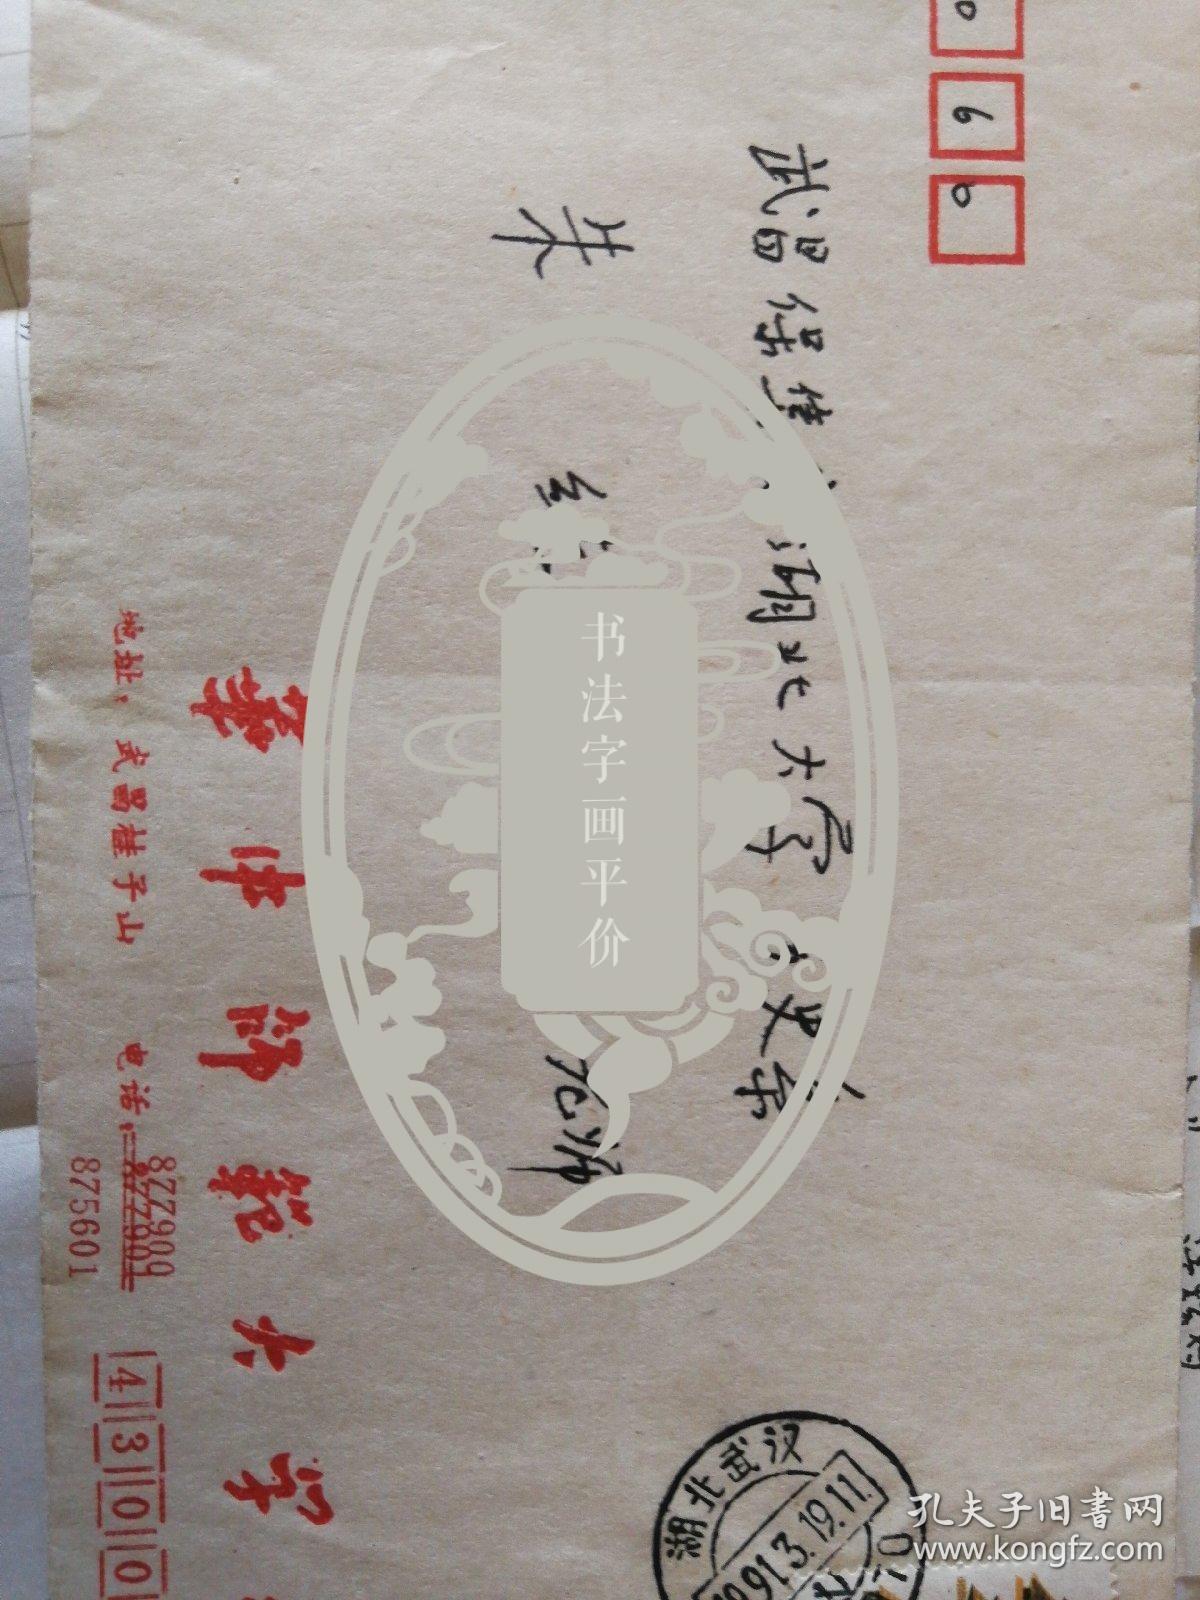 060
武昌保集 湖北大学 史系
朱 老师
书法字画平价
華中師範大学
地址：武昌桂子山 电话：877901
877900
875601
4300
湖北武汉
1991.3.19.11.
孔夫子旧书网
www.kongfz.com